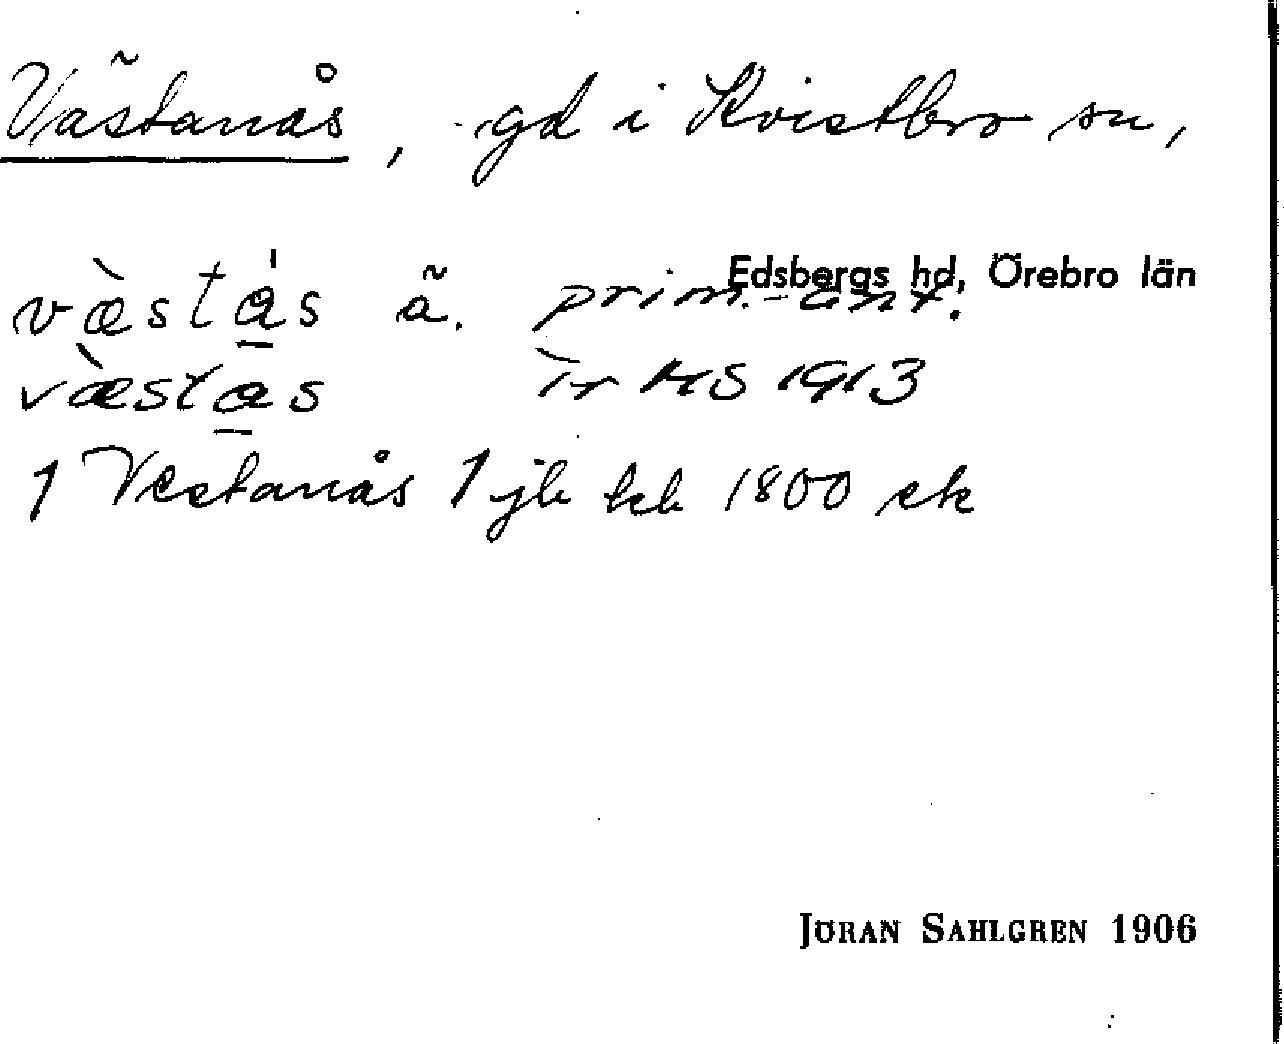 Västanås, gd i Kvistbro sn,
Edsbergs hd, Örebro län
væ̀stás ã. prim.-ant.
væ̀stas HS 1913
Vestanås 1 jb 1800
JÖRAN SAHLGREN 1906